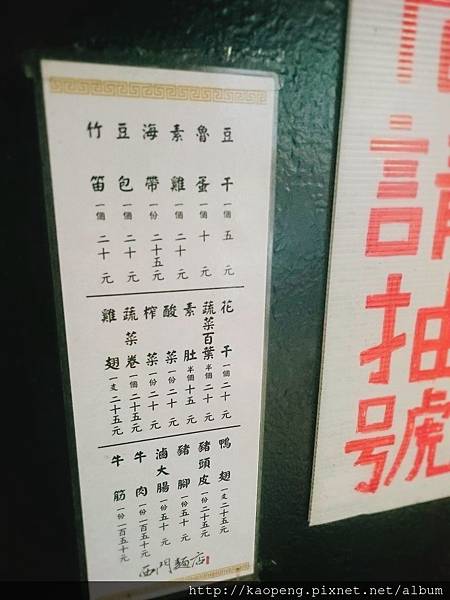 豆干 一個 五元
魯蛋 一個 十元
素雞 一個 二十元
海帶 一份 二十五元
豆包 一個 二十元
竹笛 一個 二十元
花干 一個 二十元
蔬菜百葉 半個 二十元
素肚 半個 十五元
酸菜 一份 二十元
榨菜 一份 二十元
蔬菜卷 一個 二十五元
雞翅 一支 二十五元
鴨翅 一支 二十五元
豬頭皮 一份 二十五元
豬腳 一份 五十元
滷大腸 一份 五十元
牛肉 一份 一百五十元
牛筋 一份 一百五十元
西門麵店
請抽號
http://kaopeng.pixnet.net/album